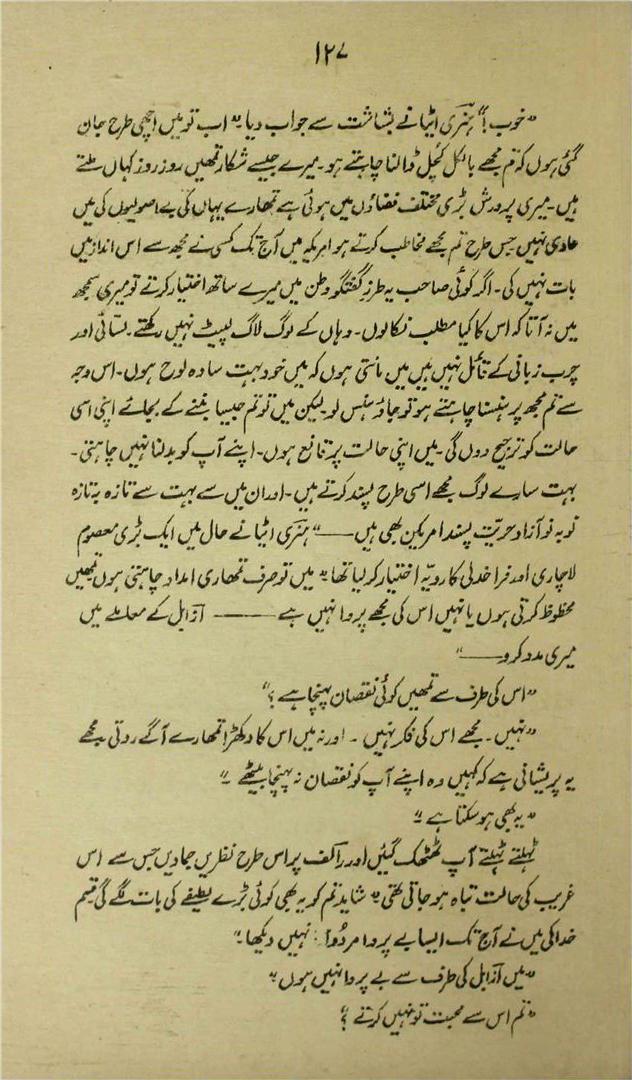 ۱۲۷
"خوب!" ہنری اٹیا نے بشاشت سے جواب دیا "اب تو میں اچھی طرح جان
گئی ہوں کہ تم مجھے بالکل کچل ڈالنا چاہتے ہو۔ میرے جیسے شکار تمھیں روز روز کہاں ملتے
ہیں۔ میری پرورش بڑی مختلف فضاؤں میں ہوئی ہے تمھارے یہاں کی بے اصولیوں کی میں
عادی نہیں جس طرح تم مجھے مخاطب کرتے ہو امریکہ میں آج تک کسی نے مجھ سے اس انداز میں
بات نہیں کی۔ اگر کوئی صاحب یہ طرز گفتگو وطن میں میرے ساتھ اختیار کرتے تو میری سمجھ
میں نہ آتا کہ اس کا کیا مطلب نکالوں۔ وہاں کے لوگ لاگ لپیٹ نہیں رکھتے۔ لسّانی اور
چرب زبانی کے قائل نہیں ہیں میں مانتی ہوں کہ میں خود بہت سادہ لوح ہوں۔ اس وجہ
سے تم مجھ پر ہنسنا چاہتے ہو تو جاؤ ہنس لو لیکن میں تو تم جیسا بننے کے بجائے اپنی اسی
حالت کو ترجیح دوں گی۔ میں اپنی حالت پر قانع ہوں۔ اپنے آپ کو بدلنا نہیں چاہتی۔
بہت سارے لوگ مجھے اسی طرح پسند کرتے ہیں۔ اور ان میں سے بہت سے تازہ بہ تازہ
نو بہ نو آزاد حریّت پسند امریکین بھی ہیں ——" ہنری اٹیا نے حال میں ایک بڑی معصوم
لاچاری اور فراخدلی کا رویّہ اختیار کر لیا تھا "میں تو صرف تمھاری امداد چاہتی ہوں تمھیں
محظوظ کرتی ہوں یا نہیں اس کی مجھے پروا نہیں ہے —— ازابل کے معاملے میں
میری مدد کرو ——"
"اس کی طرف سے تمھیں کوئی نقصان پہنچا ہے؟"
"نہیں۔ مجھے اس کی فکر نہیں۔ اور نہ میں اس کا دکھڑا تمھارے آگے روتی۔ مجھے
یہ پریشانی ہے کہ کہیں وہ اپنے آپ کو نقصان نہ پہنچا بیٹھے۔"
"یہ بھی ہو سکتا ہے۔"
ٹہلتے ٹہلتے آپ ٹھٹھک گئیں اور رالف پر اس طرح نظریں جما دیں جس سے اس
غریب کی حالت تباہ ہو جاتی تھی "شاید تم کو یہ بھی کوئی بڑے لطیفے کی بات لگے گی قسم
خدا کی میں نے آج تک ایسا بے پروا مردُوا نہیں دیکھا۔"
"میں ازابل کی طرف سے بے پروا نہیں ہوں"
"تم اس سے محبت تو نہیں کرتے؟"